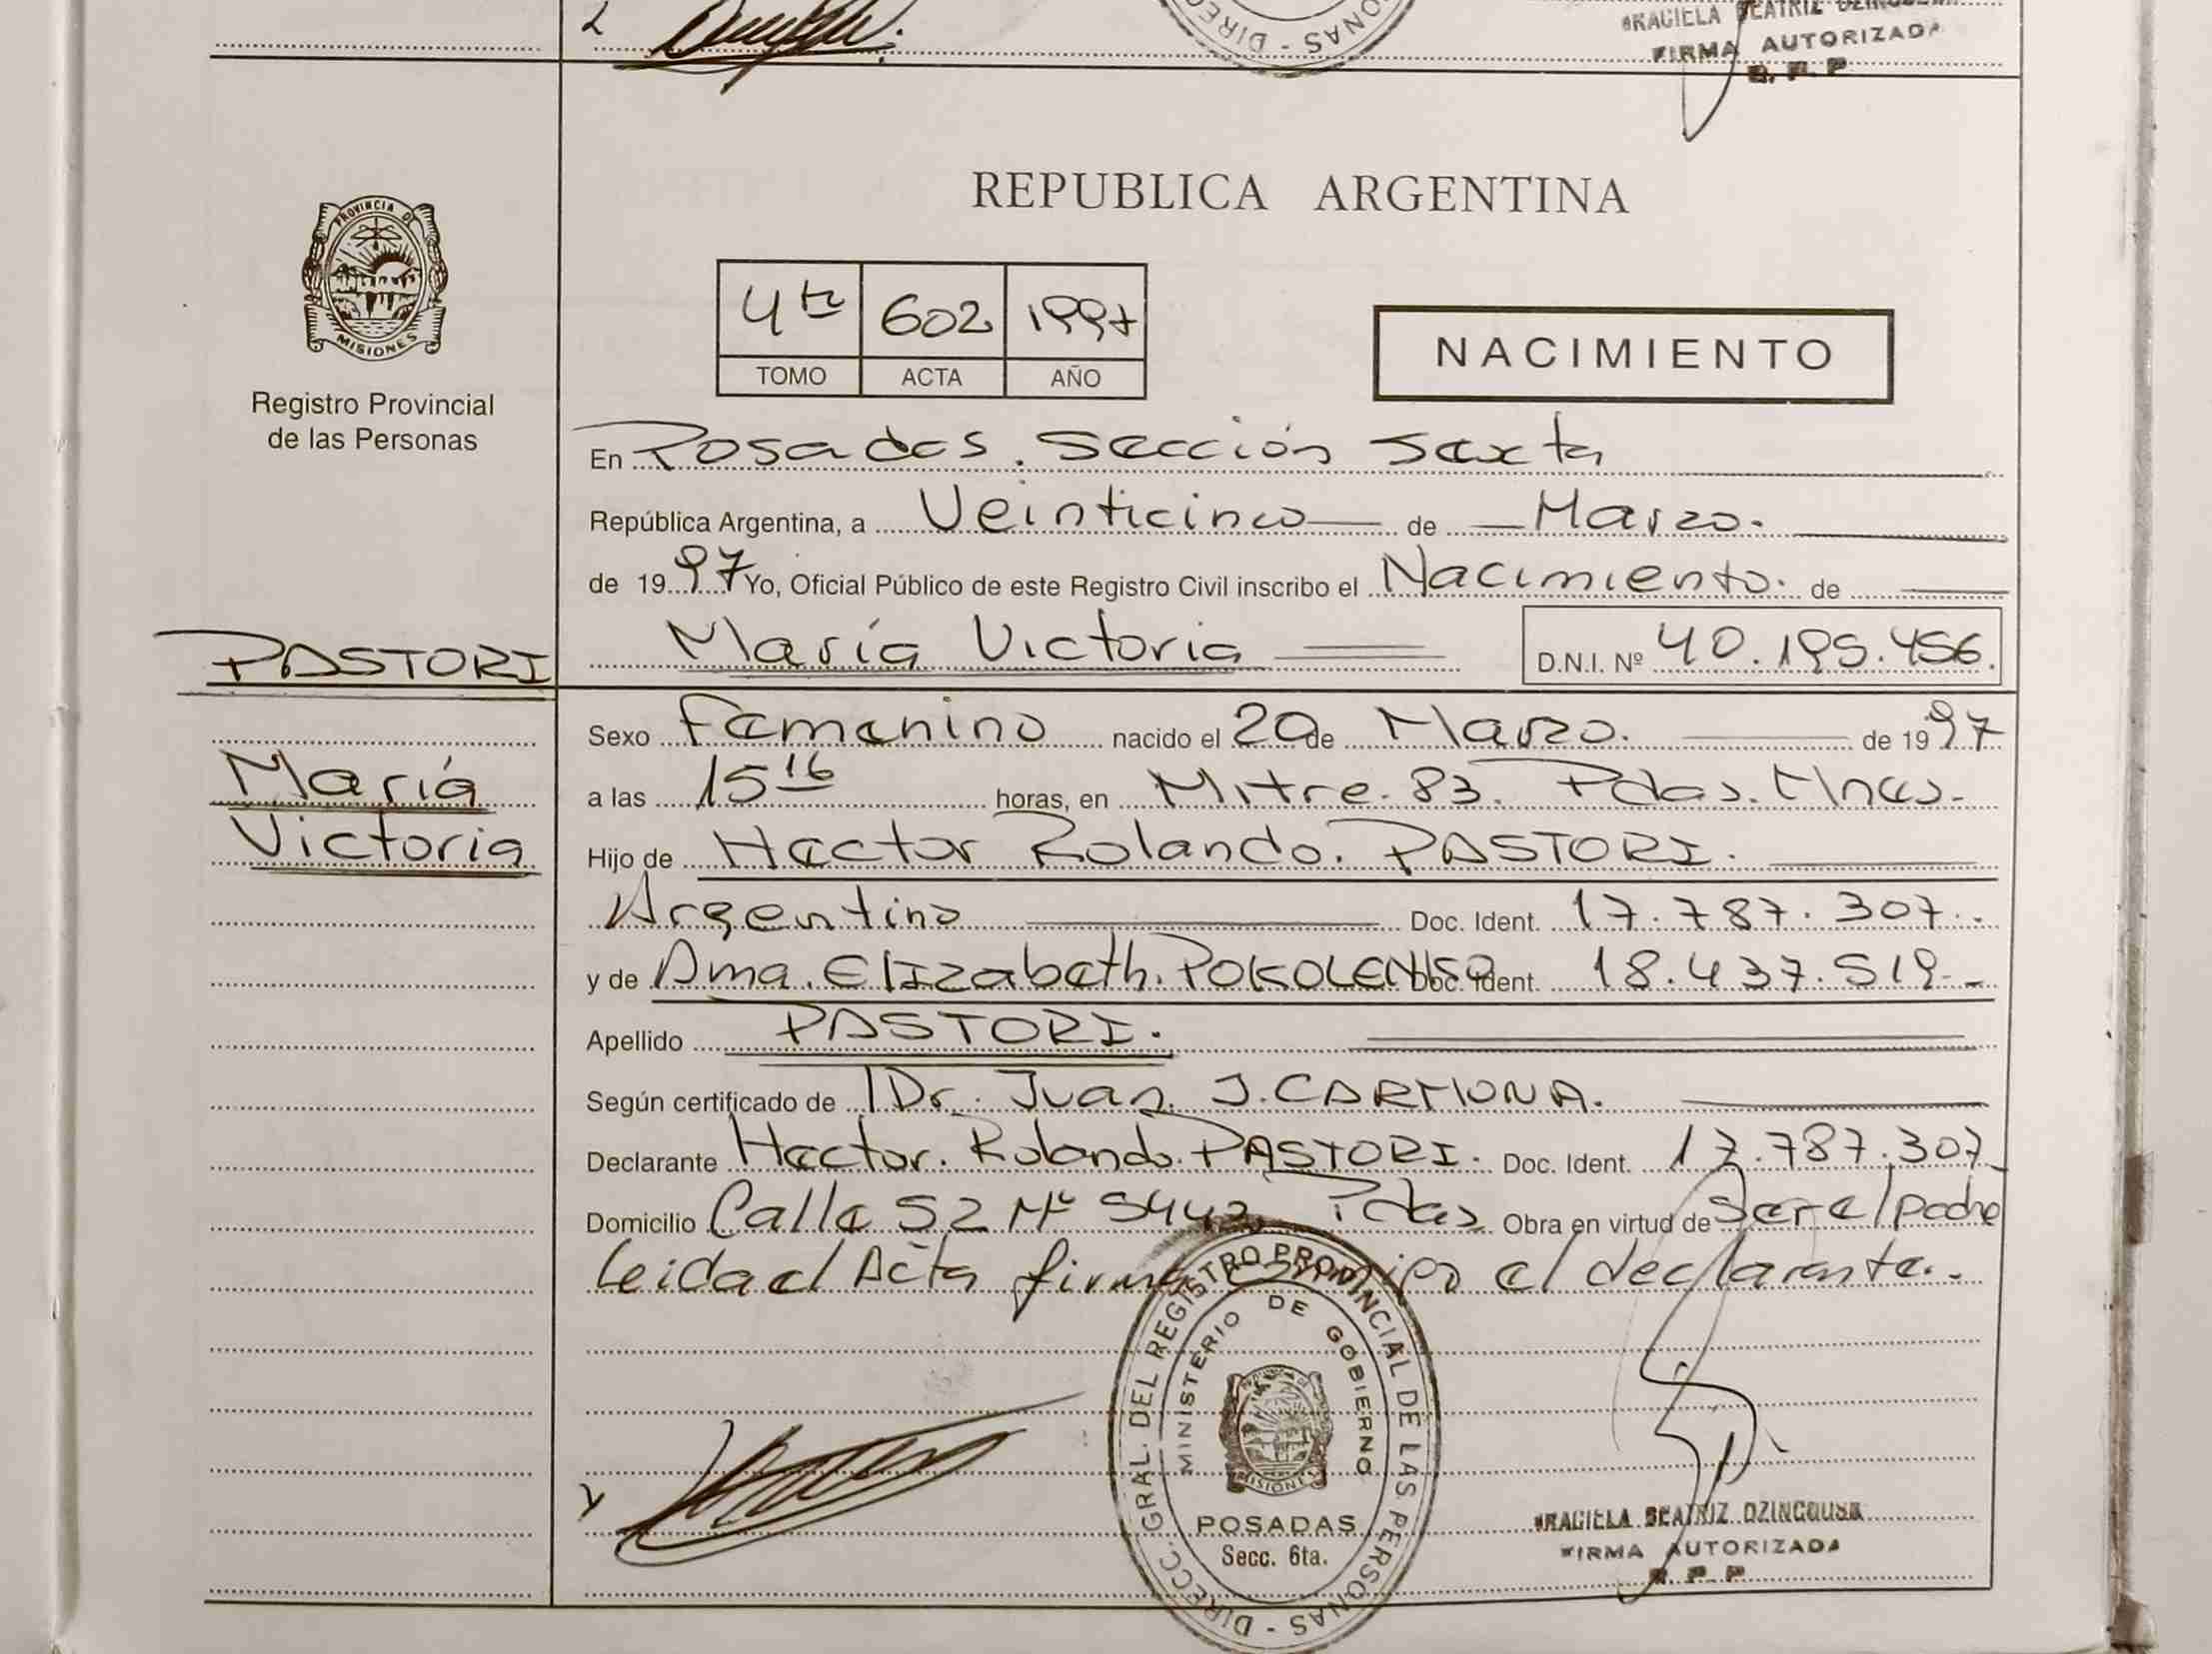 GRACIELA BEATRIZ
FIRMA AUTORIZADA
R. P. P
PROVINCIA DE
MISIONES
Registro Provincial
de las Personas
REPUBLICA ARGENTINA
4to 602 1997
TOMO ACTA AÑO
NACIMIENTO
En Posadas. Sección Sexta
República Argentina, a Veinticinco de Marzo.
de 1997 Yo, Oficial Público de este Registro Civil inscribo el Nacimiento. de
María Victoria D.N.I. Nº 40.195.456.
PASTORI
María
Victoria
Sexo Femenino nacido el 20 de Marzo. de 1997
a las 15 16 horas, en Mitre. 83. Pdas. Mnes.
Hijo de Hector Rolando. PASTORI.
Argentino Doc. Ident. 17.787.307.
y de Ana. Elizabeth. Doc. Ident. 18.437.519.
Apellido PASTORI.
Según certificado de Dr. Juan. J. CARMONA.
Declarante Hector. Rolando. PASTORI. Doc. Ident. 17.787.307
Domicilio Calle 52 Nº Pdas Obra en virtud de Ser el padre
Leida el Acta firma conmigo el declarante.
DIRECC. GRAL. DEL REGISTRO PROVINCIAL DE LAS PERSONAS
MINISTERIO DE GOBIERNO
MISIONES
POSADAS
Secc. 6ta.
GRACIELA BEATRIZ
FIRMA AUTORIZADA
R. P. P